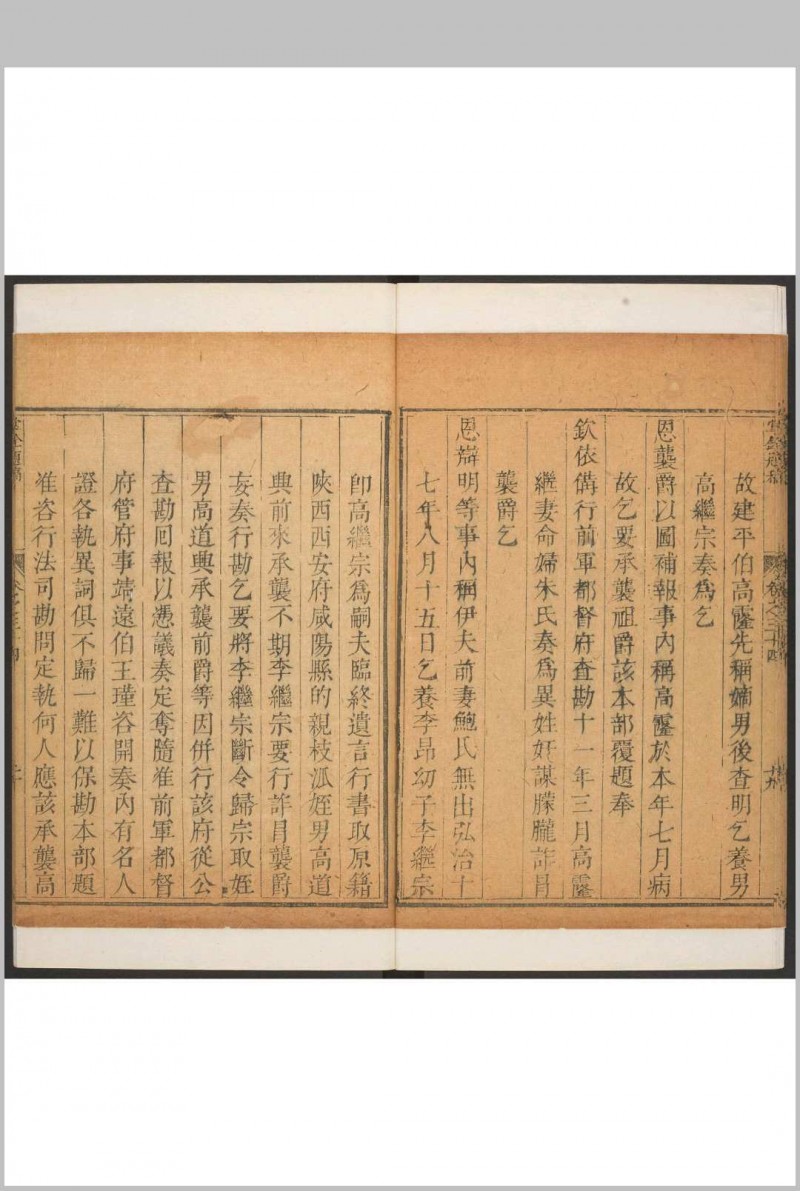 故建平伯高霳先稱嫡男後查明乞養男
高繼宗奏爲乞
恩襲爵以圖補報事內稱高霳於本年七月病
故乞要承襲祖爵該本部覆題奉
欽依備行前軍都督府查勘十一年三月高霳
繼妻命婦朱氏奏爲異姓奸謀朦朧詐冒
襲爵乞
恩辯明等事內稱伊夫前妻鮑氏無出弘治十
七年八月十五日乞養李昂幼子李繼宗
卽高繼宗爲嗣夫臨終遺言行書取原籍
陜西西安府咸陽縣的親枝派姪男高道
興前來承襲不期李繼宗要行詐冒襲爵
妄奏行勘乞要將李繼宗斷令歸宗取姪
男高道興承襲前爵等因併行該府從公
查勘囘報以憑議奏定奪隨准前軍都督
府管府事靖遠伯王瑾咨開奏內有名人
證各執異詞俱不歸一難以保勘本部題
准咨行法司勘問定執何人應該承襲高